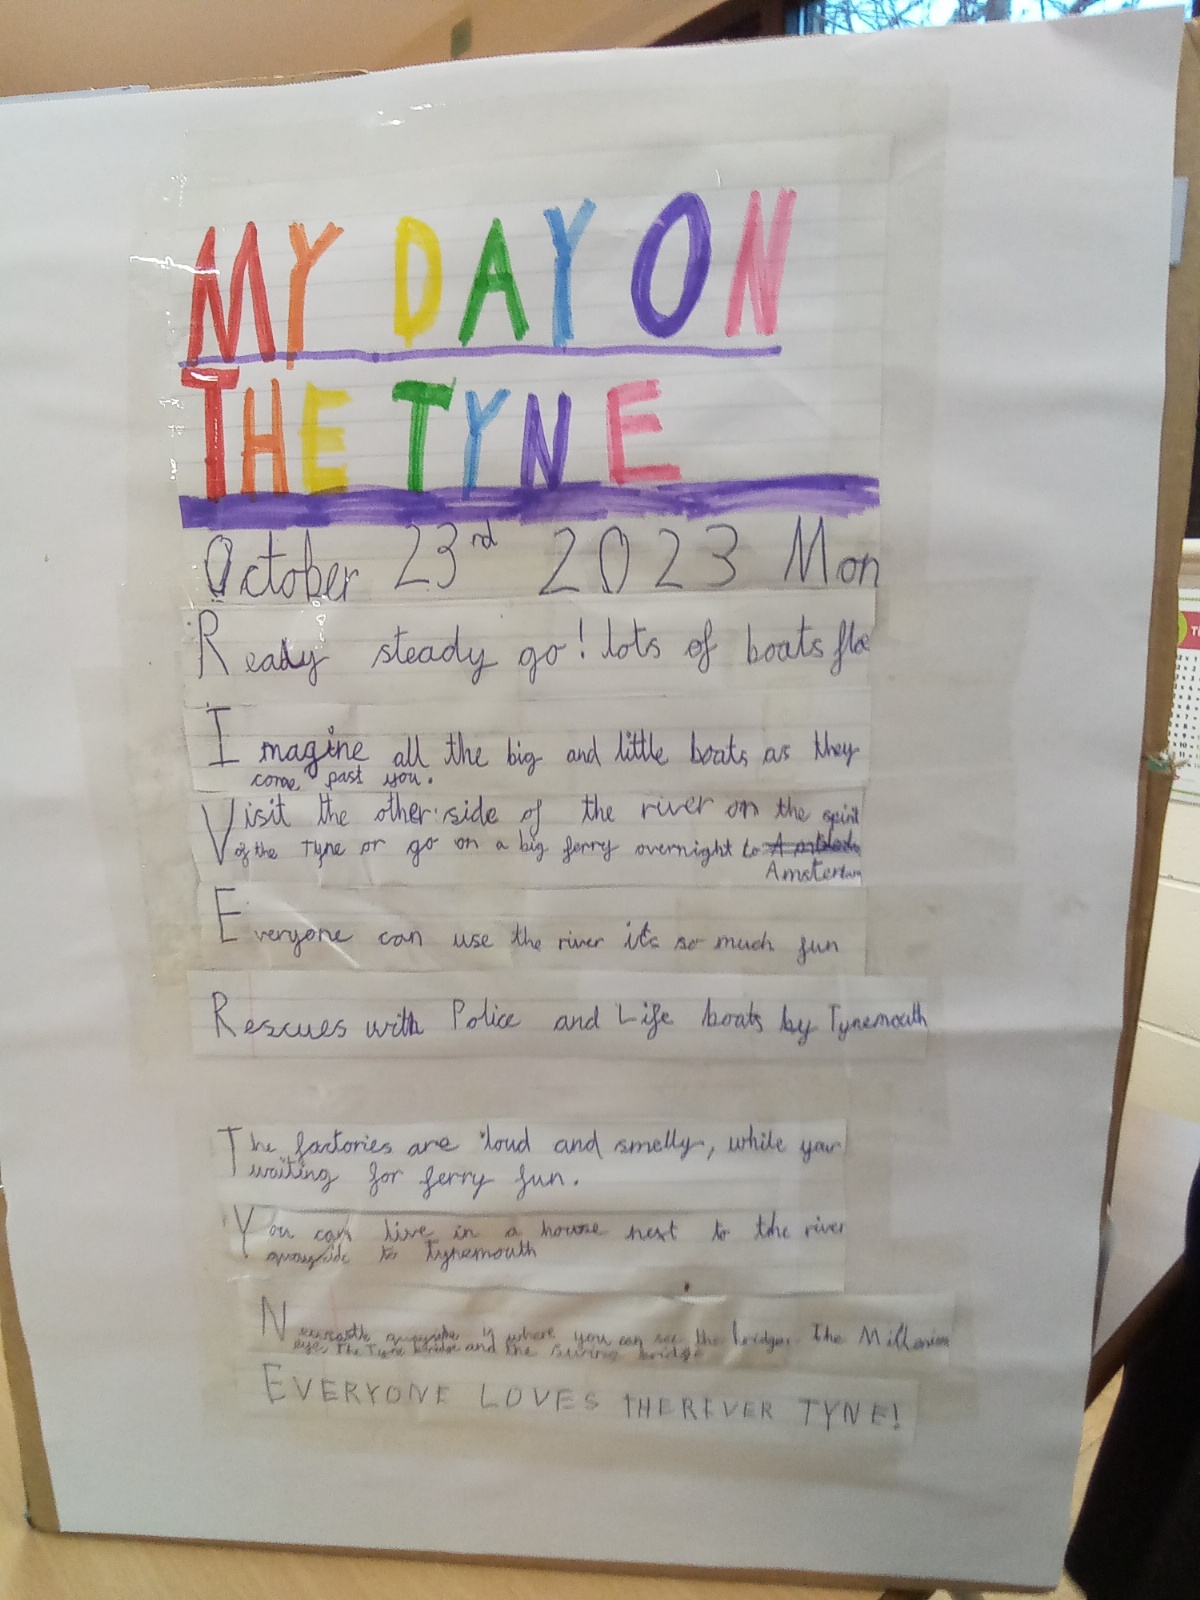 MY DAY ON
THE TYNE
October 23rd 2023 Mon
Ready steady go! lots of boats flo
Imagine all the big and little boats as they
come past you.
Visit the other side of the river on the spirit
of the Tyne or go on a big ferry overnight to
Amsterdam
Everyone can use the river its so much fun
Rescues with Police and Life boats by Tynemouth
The factories are loud and smelly, while your
waiting for ferry fun.
You can live in a house next to the river
quayside to tynemouth
Newcastle quayside is where you can see the bridges. The Millenium
eye, The Tyne bridge and the swing bridge
EVERYONE LOVES THE RIVER TYNE!